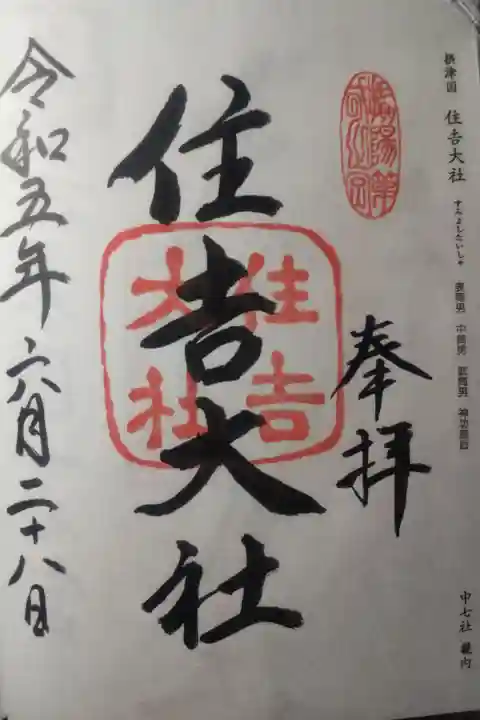 摂津国 住吉大社 すみよしたいしゃ 表筒男 中筒男 底筒男 神功皇后
中七社 畿内
奉拝
住吉大社
住吉
大社
令和五年六月二十八日